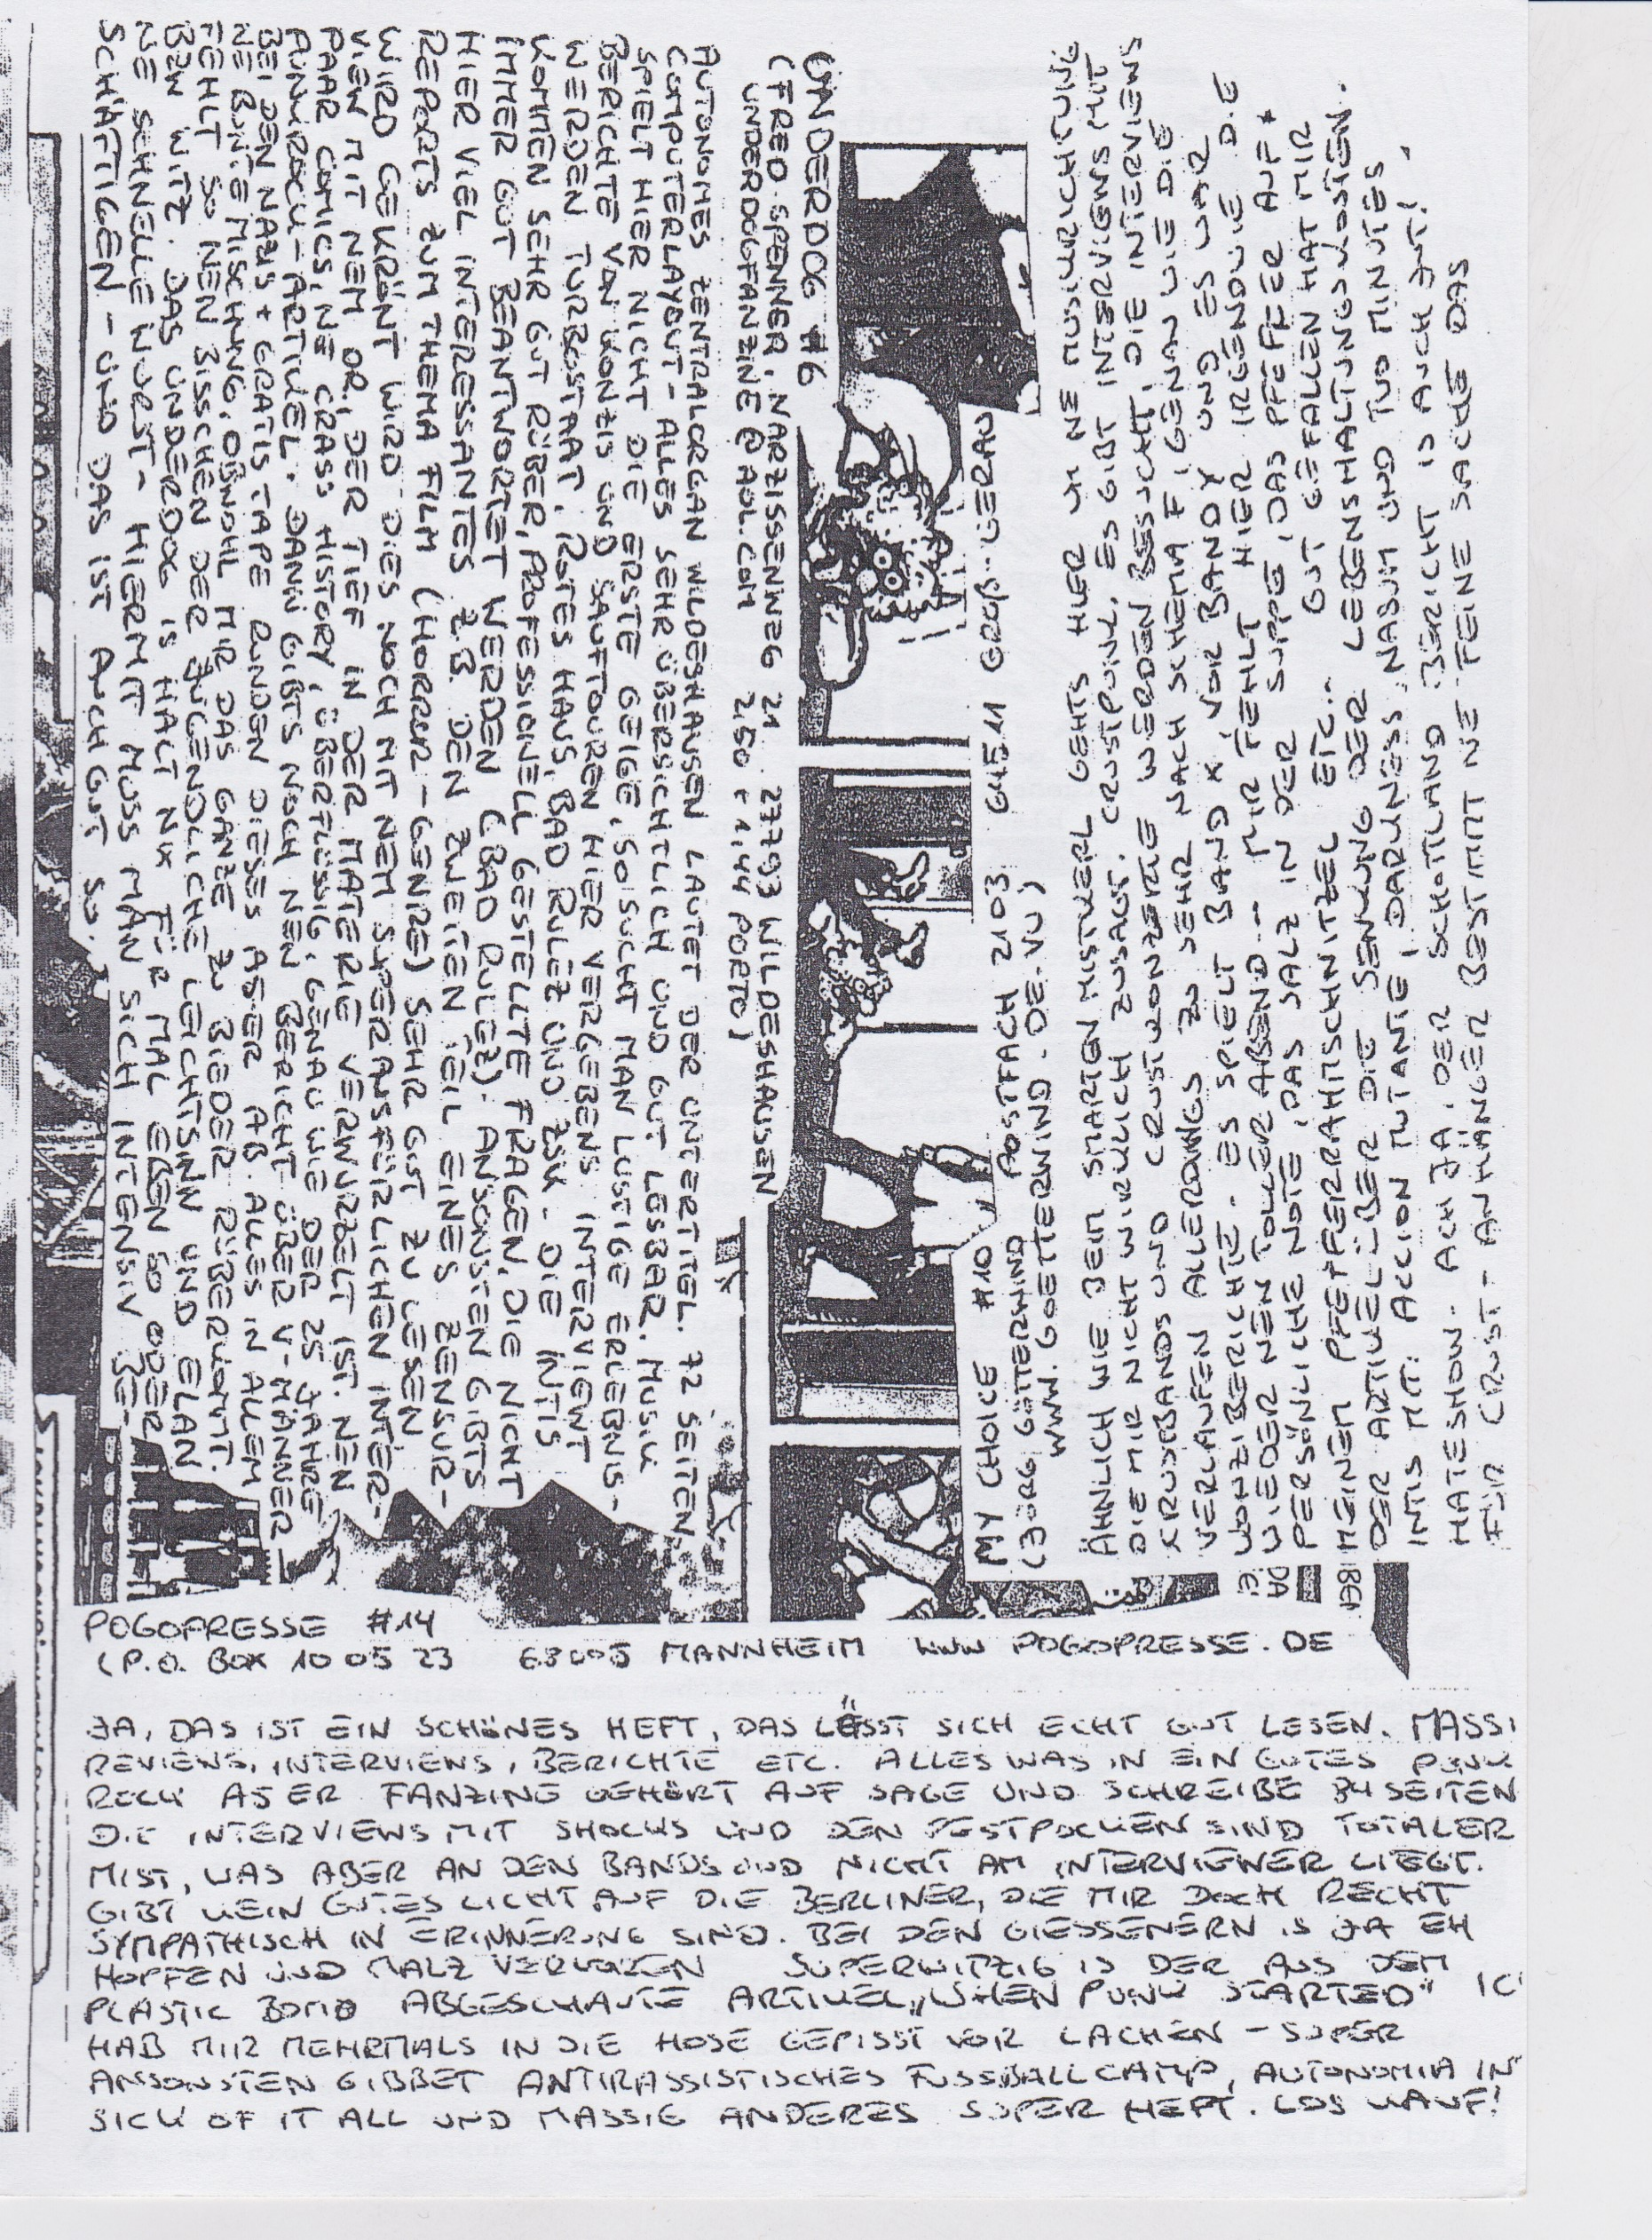 UNDERDOG #6
(FRED SPENNER, NARZISSENWEG 21 27793 WILDESHAUSEN
UNDERDOGFANZINE@AOL.COM 2,50 + 1,44 PORTO)
AUTONOMES ZENTRALORGAN WILDESHAUSEN LAUTET DER UNTERTITEL. 72 SEITEN,
COMPUTERLAYOUT - ALLES SEHR ÜBERSICHTLICH UND GUT LESBAR. MUSIK
SPIELT HIER NICHT DIE ERSTE GEIGE, SO SUCHT MAN LUSTIGE ERLEBNIS-
BERICHTE VON KONZIS UND SAUFTOUREN HIER VERGEBENS INTERVIEWT
WERDEN TURBOSTAAT, ROTES HAUS, BAD RULEZ UND ZSK - DIE INTIS
KOMMEN SEHR GUT RÜBER, PROFESSIONELL GESTELLTE FRAGEN, DIE NICHT
IMMER GUT BEANTWORTET WERDEN (BAD RULEZ). ANSONSTEN GIBTS
HIER VIEL INTERESSANTES Z.B. DEN ZWEITEN TEIL EINES ZENSUR-
REPORTS ZUM THEMA FILM (HORROR-GENRE) SEHR GUT ZU LESEN
WIRD GEKRÖNT WIRD DIES NOCH MIT NEM SUPERAUSFÜRLICHEN INTER-
VIEW MIT NEM DR., DER TIEF IN DER MATERIE VERWURZELT IST. NEN
PAAR COMICS, NE CRASS HISTORY, ÜBERFLÜSSIG, GENAU WIE DER 25 JAHRE
PUNKROCK-ARTIKEL. DANN GIBTS NOCH NEN BERICHT ÜBER V-MÄNNER
BEI DEN NAZIS + GRATIS TAPE RUNDEN DIESES ASER AB. ALLES IN ALLEM
NE BUNTE MISCHUNG, OBWOHL MIR DAS GANZE ZU BIEDER RÜBERKOMMT.
FEHLT SO NEN BISSCHEN DER JUGENDLICHE LEICHTSINN UND ELAN
BZW WITZ. DAS UNDERDOG IS HALT NIX FÜR MAL EBEN SO ODER
NE SCHNELLE WURST - HIERMIT MUSS MAN SICH INTENSIV BE-
SCHÄFTIGEN - UND DAS IST AUCH GUT SO.
MY CHOICE #10 POSTFACH 2103 64511 GROß-GERAU
(JÖRG GÖTTERWIND
WWW.GOETTERWIND.DE.VU)
ÄHNLICH WIE BEIM SMARTEN MISTKERL GEHTS HIER UM NE MUSIKRICHTUNG
DIE MIR NICHT WIRKLICH ZUSAGT. CRUSTPUNK. ES GIBT INTERVIEWS MIT
KRUSTBANDS UND CRUSTKONZERTE WERDEN BESUCHT, DIE INTERVIEWS
VERLAUFEN ALLERDINGS ZU SEHR NACH SCHEMA F, GENAU WIE DIE
KONZIBERICHTE. ES SPIELT BAND X VOR BAND Y UND ES WAR
WIEDER NEN TOLLER ABEND... MIR FEHLT HIER IRGENDWIE DIE
PERSÖNLICHE NOTE, DAS SALZ IN DER SUPPE, DAS PFEFFER AUF
MEINEM PFEFFERRAHMSCHNITZEL ETC... GUT GEFALLEN HAT MIR
DER ARTIKEL ÜBER DIE SENKUNG DER LEBENSHALTUNGSKOSTEN.
INTIS MIT: ACCION MUTANTE, DARKNESS, NASUM UND TWO MINUTES
HATESHOW. ACH JA, DER SCHOTTLAND BERICHT IS AUCH GUT!
FÜR CRUST-ANHÄNGER BESTIMMT NE FEINE SACHE DAS
POGOPRESSE #14
(P.O. BOX 10 05 23 68005 MANNHEIM WWW POGOPRESSE.DE
JA, DAS IST EIN SCHÖNES HEFT, DAS LÄSST SICH ECHT GUT LESEN. MASSI
REVIEWS, INTERVIEWS, BERICHTE ETC. ALLES WAS IN EIN GUTES PUNK
ROCK ASER FANZINE GEHÖRT AUF SAGE UND SCHREIBE 84 SEITEN
DIE INTERVIEWS MIT SHOCKS UND DEN PESTPOCKEN SIND TOTALER
MIST, WAS ABER AN DEN BANDS UND NICHT AM INTERVIEWER LIEGT.
GIBT KEIN GUTES LICHT AUF DIE BERLINER, DIE MIR DOCH RECHT
SYMPATHISCH IN ERINNERUNG SIND. BEI DEN GIESSENERN IS JA EH
HOPFEN UND MALZ VERLOREN SUPERWITZIG IS DER AUS DEM
PLASTIC BOMB ABGESCHAUTE ARTIKEL „WHEN PUNK STARTED" IC
HAB MIR MEHRMALS IN DIE HOSE GEPISST VOR LACHEN - SUPER
ANSONSTEN GIBBET ANTIRASSISTISCHES FUSSBALLCAMP, AUTONOMIA IN
SICK OF IT ALL UND MASSIG ANDERES SUPER HEFT. LOS KAUF!